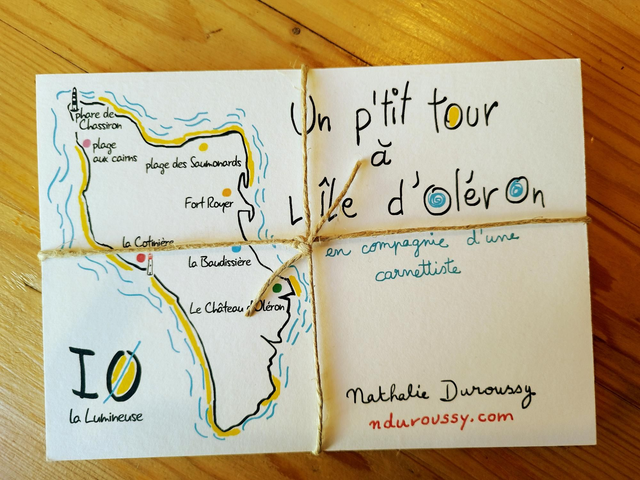 phare de
Chassiron
plage
aux cairns
plage des Saumonards
Fort Royer
la Cotinière
la Baudissière
Le Château d'Oléron
IO
la Lumineuse
Un p'tit tour
à
L'île d'Oléron
en compagnie d'une
carnettiste
Nathalie Duroussy
nduroussy.com